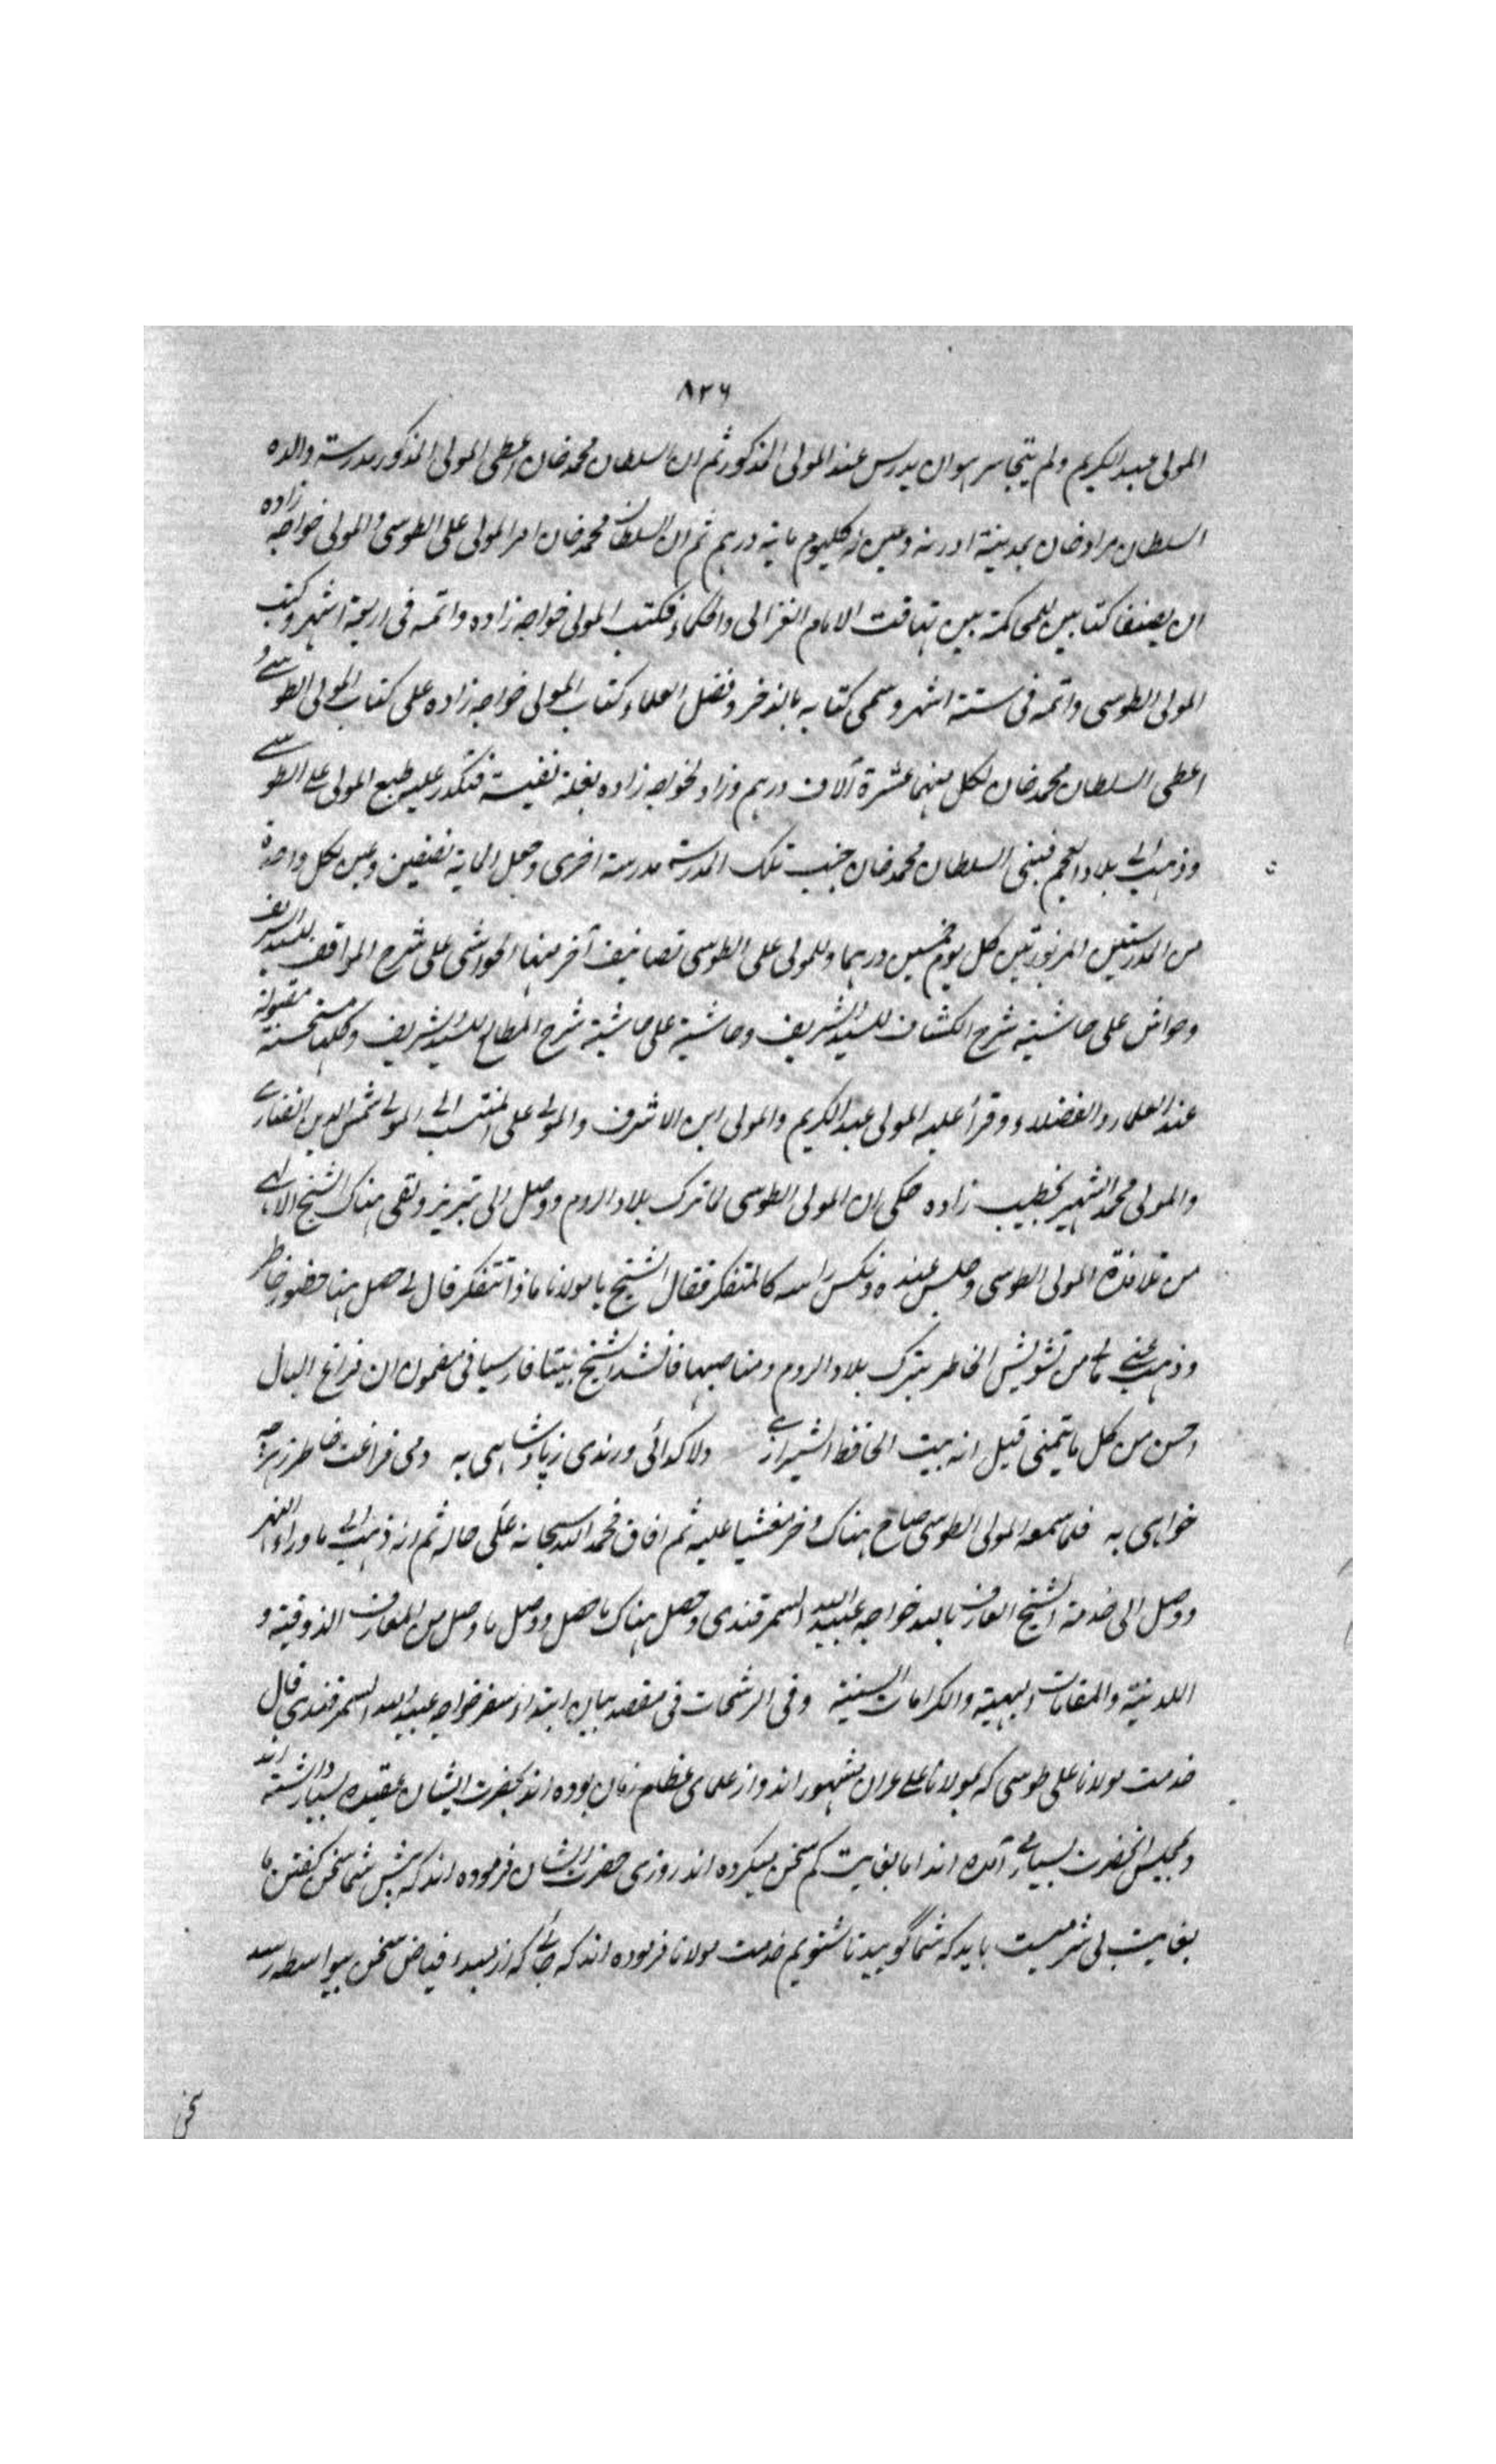 ٨٢٦
المولى عبد الكريم ولم يتجاسر هو ان يدرس عند المولى المذكور ثم ان السلطان محمد خان اعطى المولى المذكور مدرسة والده
السلطان مراد خان بمدينة ادرنه وعين له كل يوم ماية درهم ثم ان السلطان محمد خان امر المولى على الطوسى والمولى خواجه زاده
ان يصنفا كتابين للمحاكمة بين تهافت الامام الغزالى والحكماء فكتب المولى خواجه زاده واتمه فى اربعة اشهر وكتب
المولى الطوسى واتمه فى ستة اشهر وسمى كتابه بالذخر وفضل العلماء كتاب المولى خواجه زاده على كتاب المولى الطوسے و
اعطى السلطان محمد خان لكل منهما عشرة آلاف درهم وزاد لخواجه زاده بغلة نفيسة فتكدر عليه طبع المولى علے الطوسے
وذهب الى بلاد العجم فبنى السلطان محمد خان جنب تلك المدرسة مدرسة اخرى وجعل الماية نصفين وعين لكل واحدة
من المدرستين المزبورتين كل يوم خمسين درهما وللمولى على الطوسى تصانيف آخر منها الحواشى على شرح المواقف للسيد الشريف
وحواش على حاشية شرح الكشاف للسيد الشريف وحاشية على حاشية شرح المطالع للسيد الشريف وكلها مستحسنة مقبولة
عند العلماء والفضلاء وقرأ عليه المولى عبد الكريم والمولى ابن الاشرف والمولى على المنتسب الى المولى شمس الدين الفنارے
والمولى محمد الشهير بخطيب زاده حكى ان المولى الطوسى لما ترك بلاد الروم ووصل الى تبريز ولقى هناك الشيخ الالهے
من تلامذة المولى الطوسى وجلس عنده ونكس راسه كالمتفكر فقال الشيخ يا مولانا ماذا تتفكر قال لے حصل هنا حضور خاطر
وذهب عنے مالے من تشويش الخاطر بترك بلاد الروم ومناصبها فانشد الشيخ بيتا فارسيا فى مضمون ان فراغ البال
احسن من كل ما يتمنى قيل انه بيت الحافظ الشيرازے دلا گدائى ورندى ز پادشاهى به دمى فراغت خاطر ز هر چه
خواهى به فلما سمعه المولى الطوسى صاح هناك وخر مغشيا عليه ثم افاق فحمد الله سبحانه على حاله ثم انه ذهب الى ما وراء النهر
ووصل الى خدمة الشيخ العارف بالله خواجه عبيد الله السمرقندى وحصل هناك ما حصل ووصل ما وصل من المعارف الذوقية و
اللدنية والمقامات البهية والكرامات السنية وفى الرشحات فى مقصد بيان ابتداء سفر خواجه عبيد الله السمرقندى قال
خدمت مولانا على طوسى كه بمولانا علے عران مشهور اند واز علماى عظام زمان بوده اند بحضرت ايشان عقيده بسيار داشته اند
وبمجلس آنحضرت بسيارے آمده اند اما بغايت كم سخن ميكرده اند روزى حضرت ايشان فرموده اند كه پيش شما سخن گفتن ما
بغايت بى شرميست بايد كه شما گوييد تا شنويم خدمت مولانا فرموده اند كه جائے كه از مبداء فياض سخن بيواسطه رسد
سخن